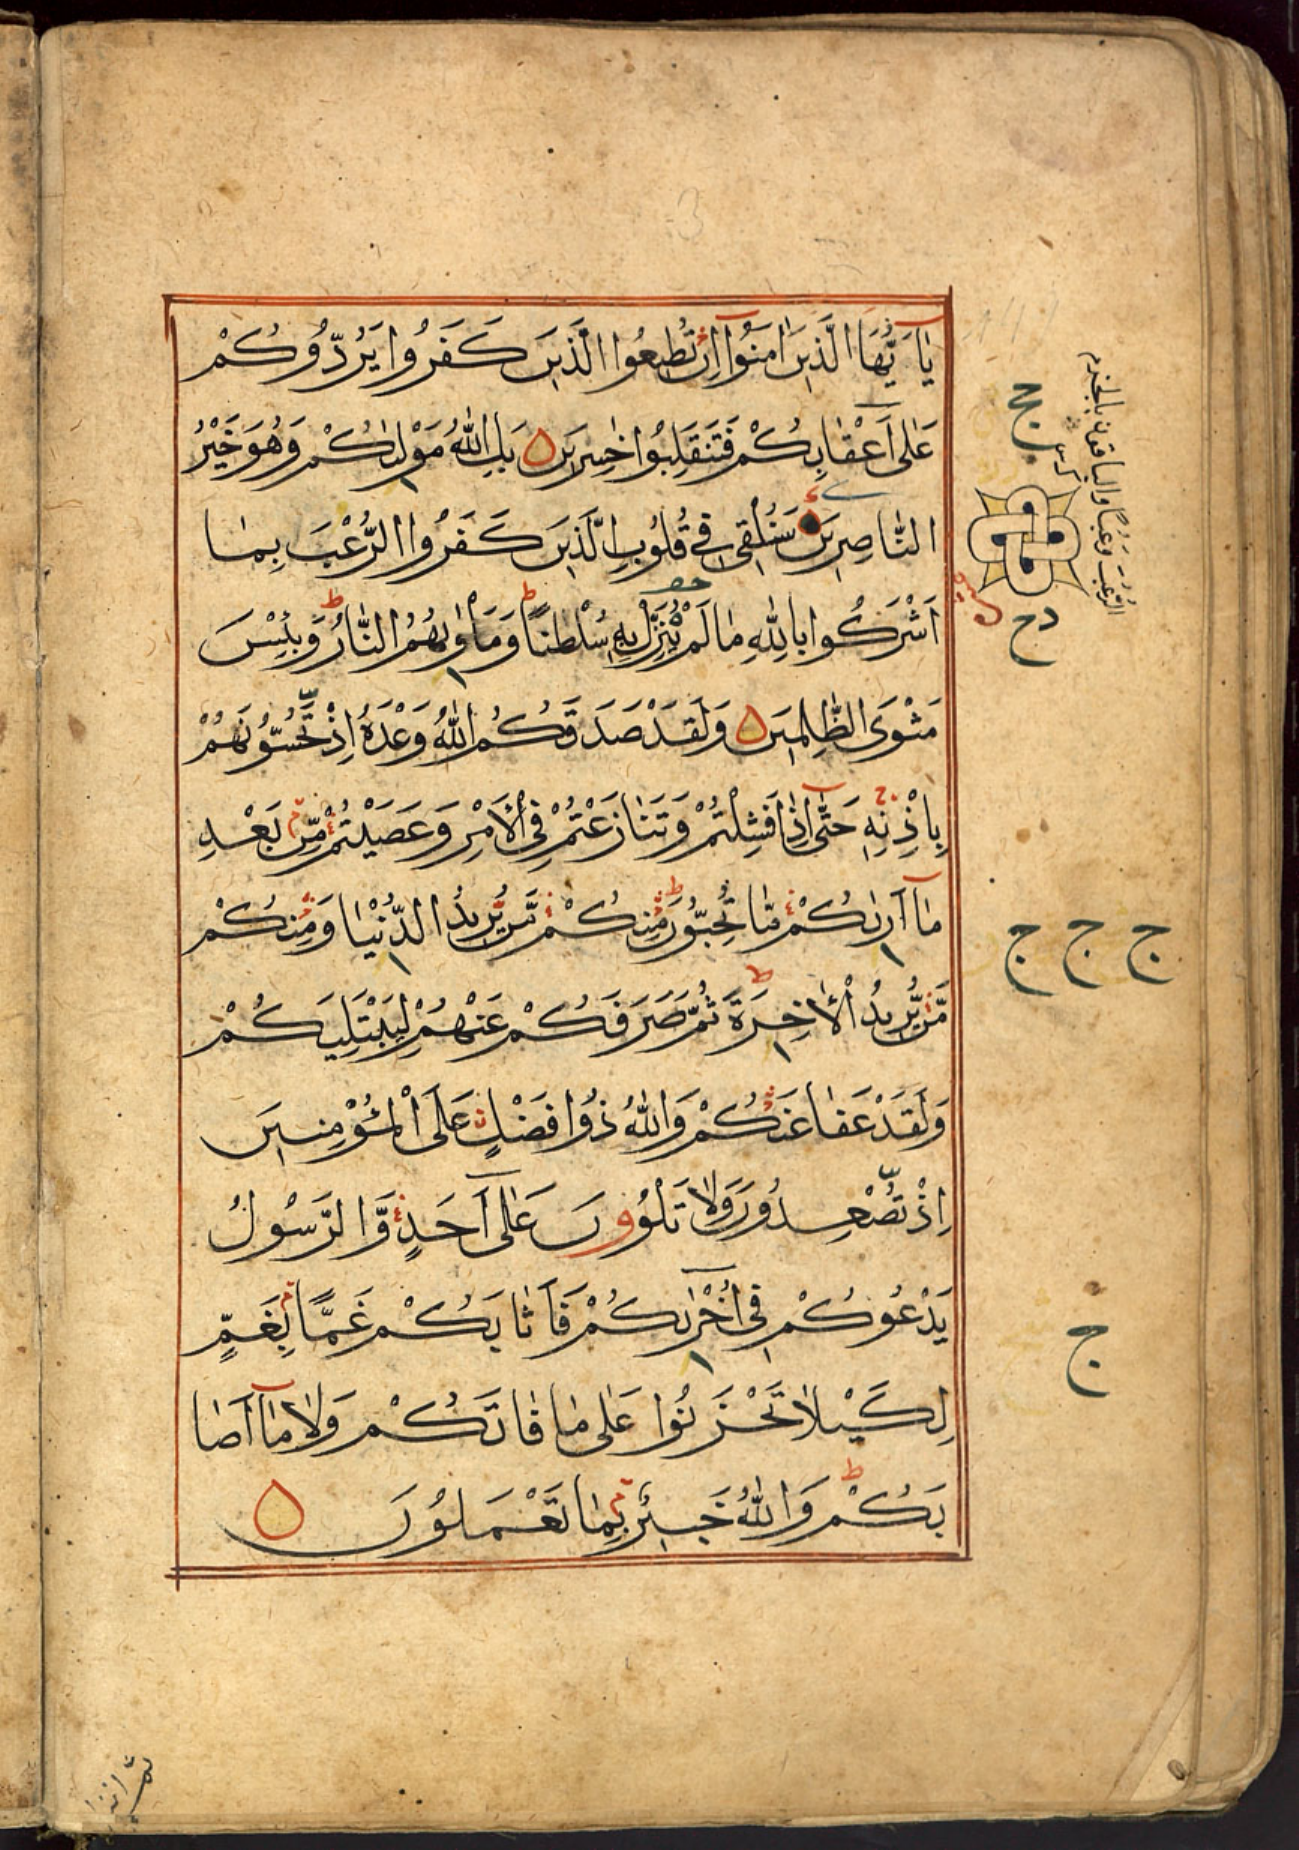 يٰٓاَ يُّهَا الَّذِيْنَ اٰمَنُوْٓا اِنْ تُطِيْعُوا الَّذِيْنَ كَفَرُوا يَرُدُّوْكُمْ
عَلٰٓى اَعْقَابِكُمْ فَتَنْقَلِبُوْا خٰسِرِيْنَ بَلِ اللّٰهُ مَوْلٰىكُمْ وَهُوَ خَيْرُ
النَّاصِرِيْنَ سَنُلْقِيْ فِيْ قُلُوْبِ الَّذِيْنَ كَفَرُوا الرُّعْبَ بِمَا
اَشْرَكُوْا بِاللّٰهِ مَا لَمْ يُنَزِّلْ بِهٖ سُلْطٰنًا وَمَاْوٰىهُمُ النَّارُ وَبِئْسَ
مَثْوَى الظّٰلِمِيْنَ وَلَقَدْ صَدَقَكُمُ اللّٰهُ وَعْدَهٗٓ اِذْ تَحُسُّوْنَهُمْ
بِاِذْنِهٖ حَتّٰٓى اِذَا فَشِلْتُمْ وَتَنَازَعْتُمْ فِى الْاَمْرِ وَعَصَيْتُمْ مِّنْ بَعْدِ
مَآ اَرٰىكُمْ مَّا تُحِبُّوْنَ مِنْكُمْ مَّنْ يُّرِيْدُ الدُّنْيَا وَمِنْكُمْ
مَّنْ يُّرِيْدُ الْاٰخِرَةَ ثُمَّ صَرَفَكُمْ عَنْهُمْ لِيَبْتَلِيَكُمْ
وَلَقَدْ عَفَا عَنْكُمْ وَاللّٰهُ ذُوْا فَضْلٍ عَلَى الْمُؤْمِنِيْنَ
اِذْ تُصْعِدُوْنَ وَلَا تَلْوُوْنَ عَلٰٓى اَحَدٍ وَّالرَّسُوْلُ
يَدْعُوْكُمْ فِيْٓ اُخْرٰىكُمْ فَاَثَابَكُمْ غَمًّا بِغَمٍّ
لِكَيْلَا تَحْزَنُوْا عَلٰى مَا فَاتَكُمْ وَلَا مَآ اَصَا
بَكُمْ وَاللّٰهُ خَبِيْرٌ بِمَا تَعْمَلُوْنَ
ج
ج ج ج
ج